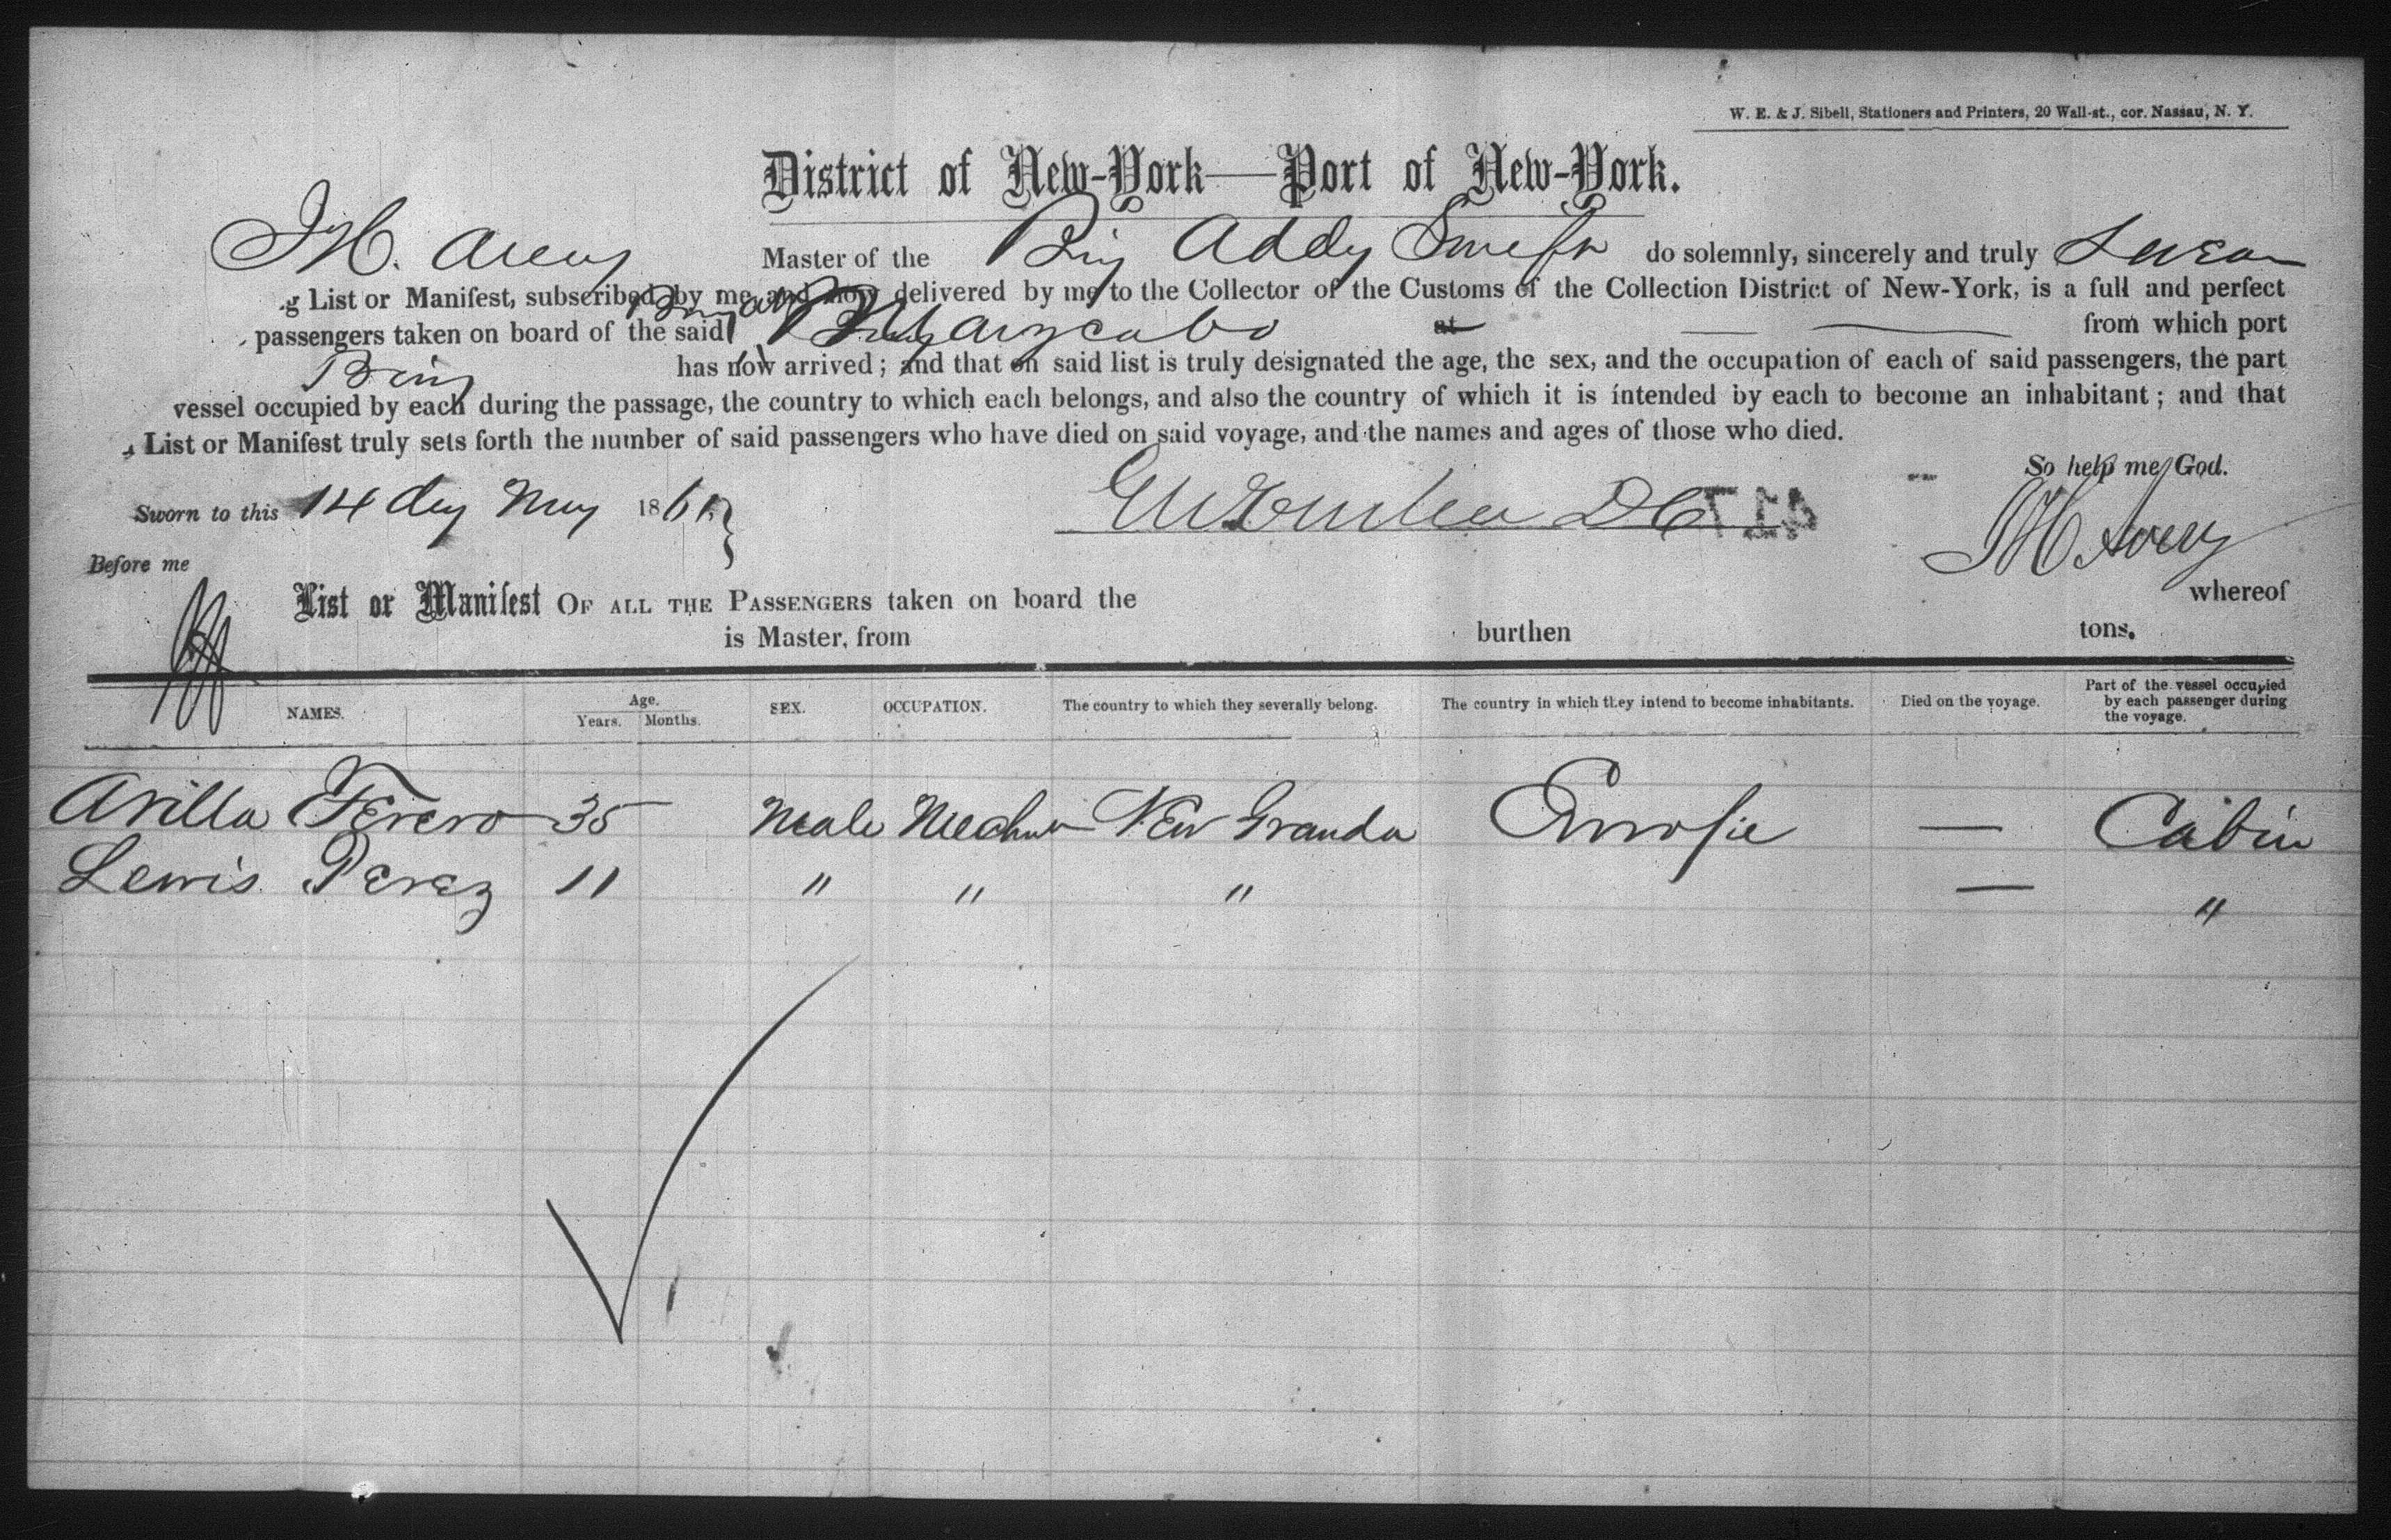 W. E. & J. Sibell, Stationers and Printers, 20 Wall-st., cor. Nassau, N. Y.
District of New-York—Port of New-York.
J H. Avery Master of the Brig Addy Swift do solemnly, sincerely and truly Swear
g List or Manifest, subscribed by me and now delivered by me to the Collector of the Customs of the Collection District of New-York, is a full and perfect
passengers taken on board of the said Brig at Maracabo at from which port
Brig has now arrived; and that on said list is truly designated the age, the sex, and the occupation of each of said passengers, the part
vessel occupied by each during the passage, the country to which each belongs, and also the country of which it is intended by each to become an inhabitant; and that
List or Manifest truly sets forth the number of said passengers who have died on said voyage, and the names and ages of those who died.
So help me God.
Sworn to this 14 day May 1861 } D C 427 J H Avery
Before me
List or Manifest OF ALL THE PASSENGERS taken on board the whereof
is Master, from burthen tons.
NAMES. Age. Years. Months. SEX. OCCUPATION. The country to which they severally belong. The country in which they intend to become inhabitants. Died on the voyage. Part of the vessel occupied by each passenger during the voyage.
Arilla Ferero 35 — Male New Granda — Cabin
Lewis Perez 11 " " " — "